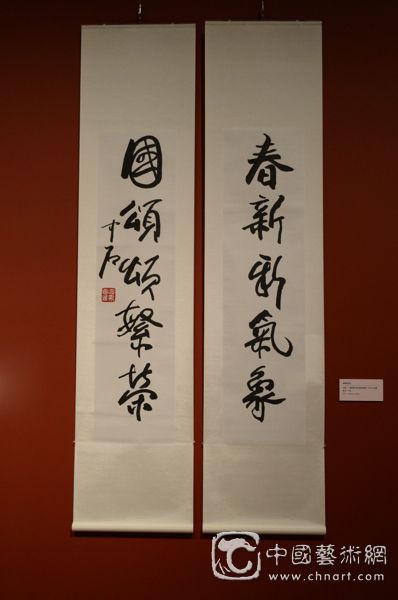 春新新氣象
國頌頌繁榮
中石
中國藝術網
www.chnart.com